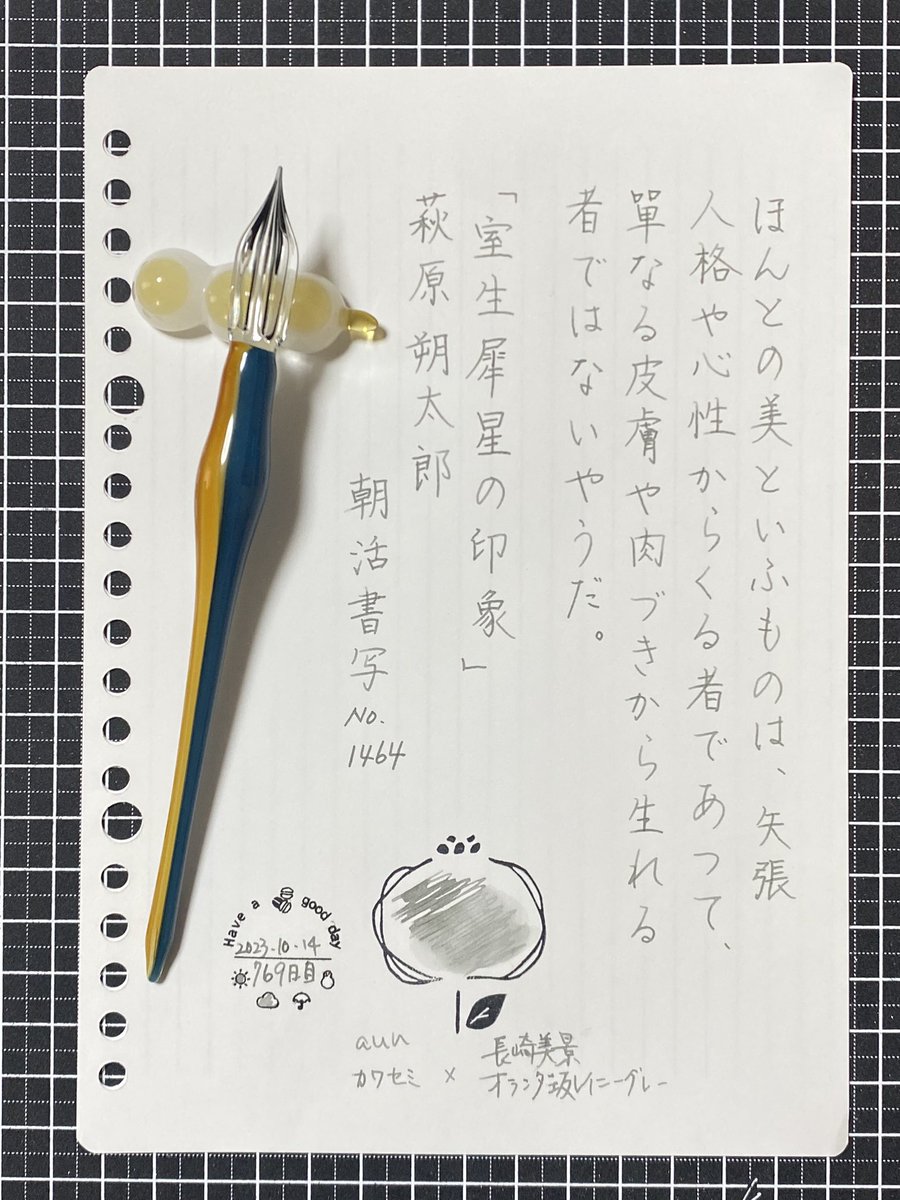 ほんとの美といふものは、矢張
人格や心性からくる者であつて、
單なる皮膚や肉づきから生れる
者ではないやうだ。
「室生犀星の印象」
萩原朔太郎
朝活書写 No. 1464
Have a good day
2023-10-14
769日目
aun
カワセミ × 長崎美景
オランダ坂レイニーグレー